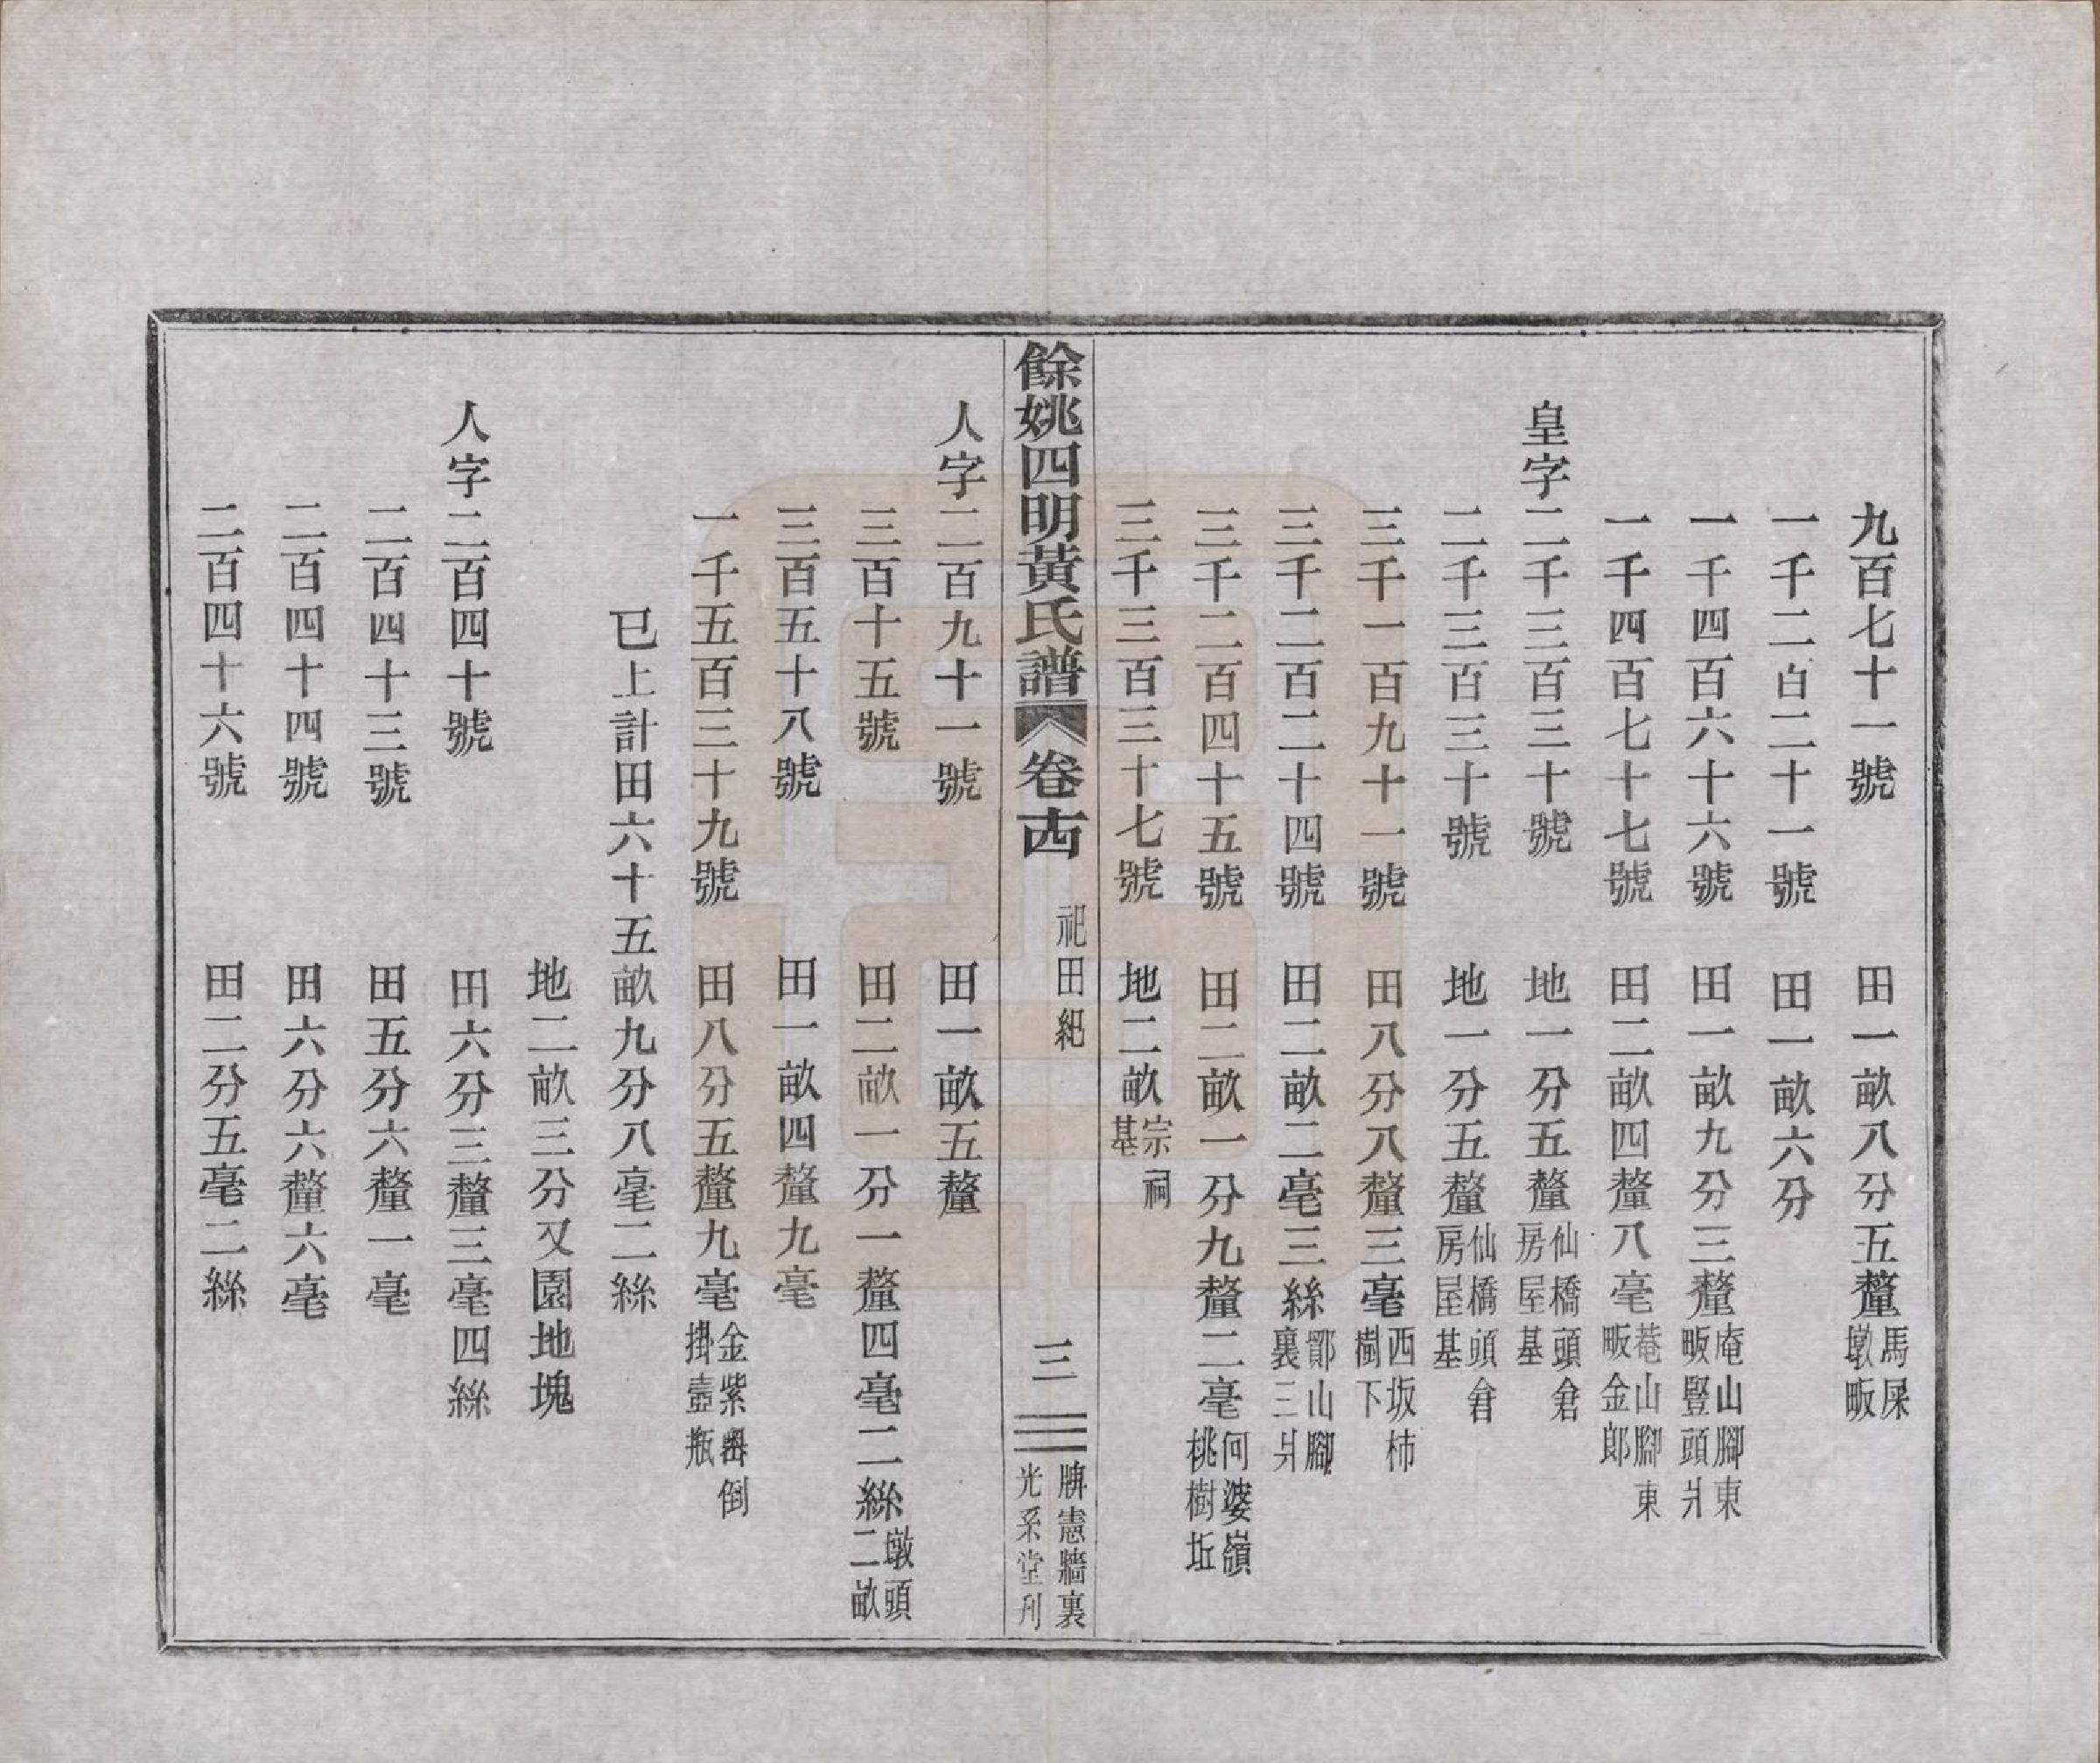 九百七十一號　田一畝八分五釐馬屎墩畈
一千二百二十一號　田一畝六分
一千四百六十六號　田一畝九分三釐庵山腳東畈豎頭爿
一千四百七十七號　田二畝四釐八毫菴山腳東畈金郎
皇字二千三百三十號　地一分五釐仙橋頭倉房屋基
二千三百三十號　地一分五釐仙橋頭倉房屋基
三千一百九十一號　田八分八釐三毫西坂柿樹下
三千二百二十四號　田二畝二毫三絲鄞山腳裏三爿
三千二百四十五號　田二畝一分九釐二毫何婆嶺桃樹坵
三千三百三十七號　地二畝宗祠基
餘姚四明黃氏譜　卷十四　祀田紀　三　竹憲牆裏光系堂刊
人字二百九十一號　田一畝五釐
三百十五號　田二畝一分一釐四毫二絲墩頭二畝
三百五十八號　田一畝四釐九毫
一千五百三十九號　田八分五釐九毫金紫嶴倒掛壺瓶
已上計田六十五畝九分八毫二絲
地二畝三分又園地塊
人字二百四十號　田六分三釐三毫四絲
二百四十三號　田五分六釐一毫
二百四十四號　田六分六釐六毫
二百四十六號　田二分五毫二絲